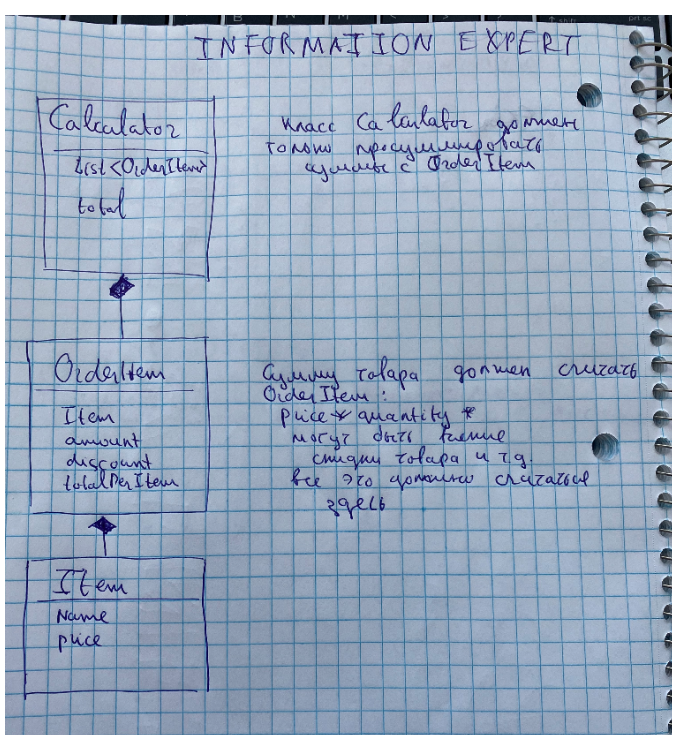 INFORMATION EXPERT
Calculator
List<OrderItem>
total
Класс Calculator должен
только просуммировать
суммы с OrderItem
OrderItem
Item
amount
discount
totalPerItem
Сумму товара должен считать
OrderItem:
price * quantity *
могут быть
скидки товара и т.д.
все это должно считаться
здесь
Item
Name
price